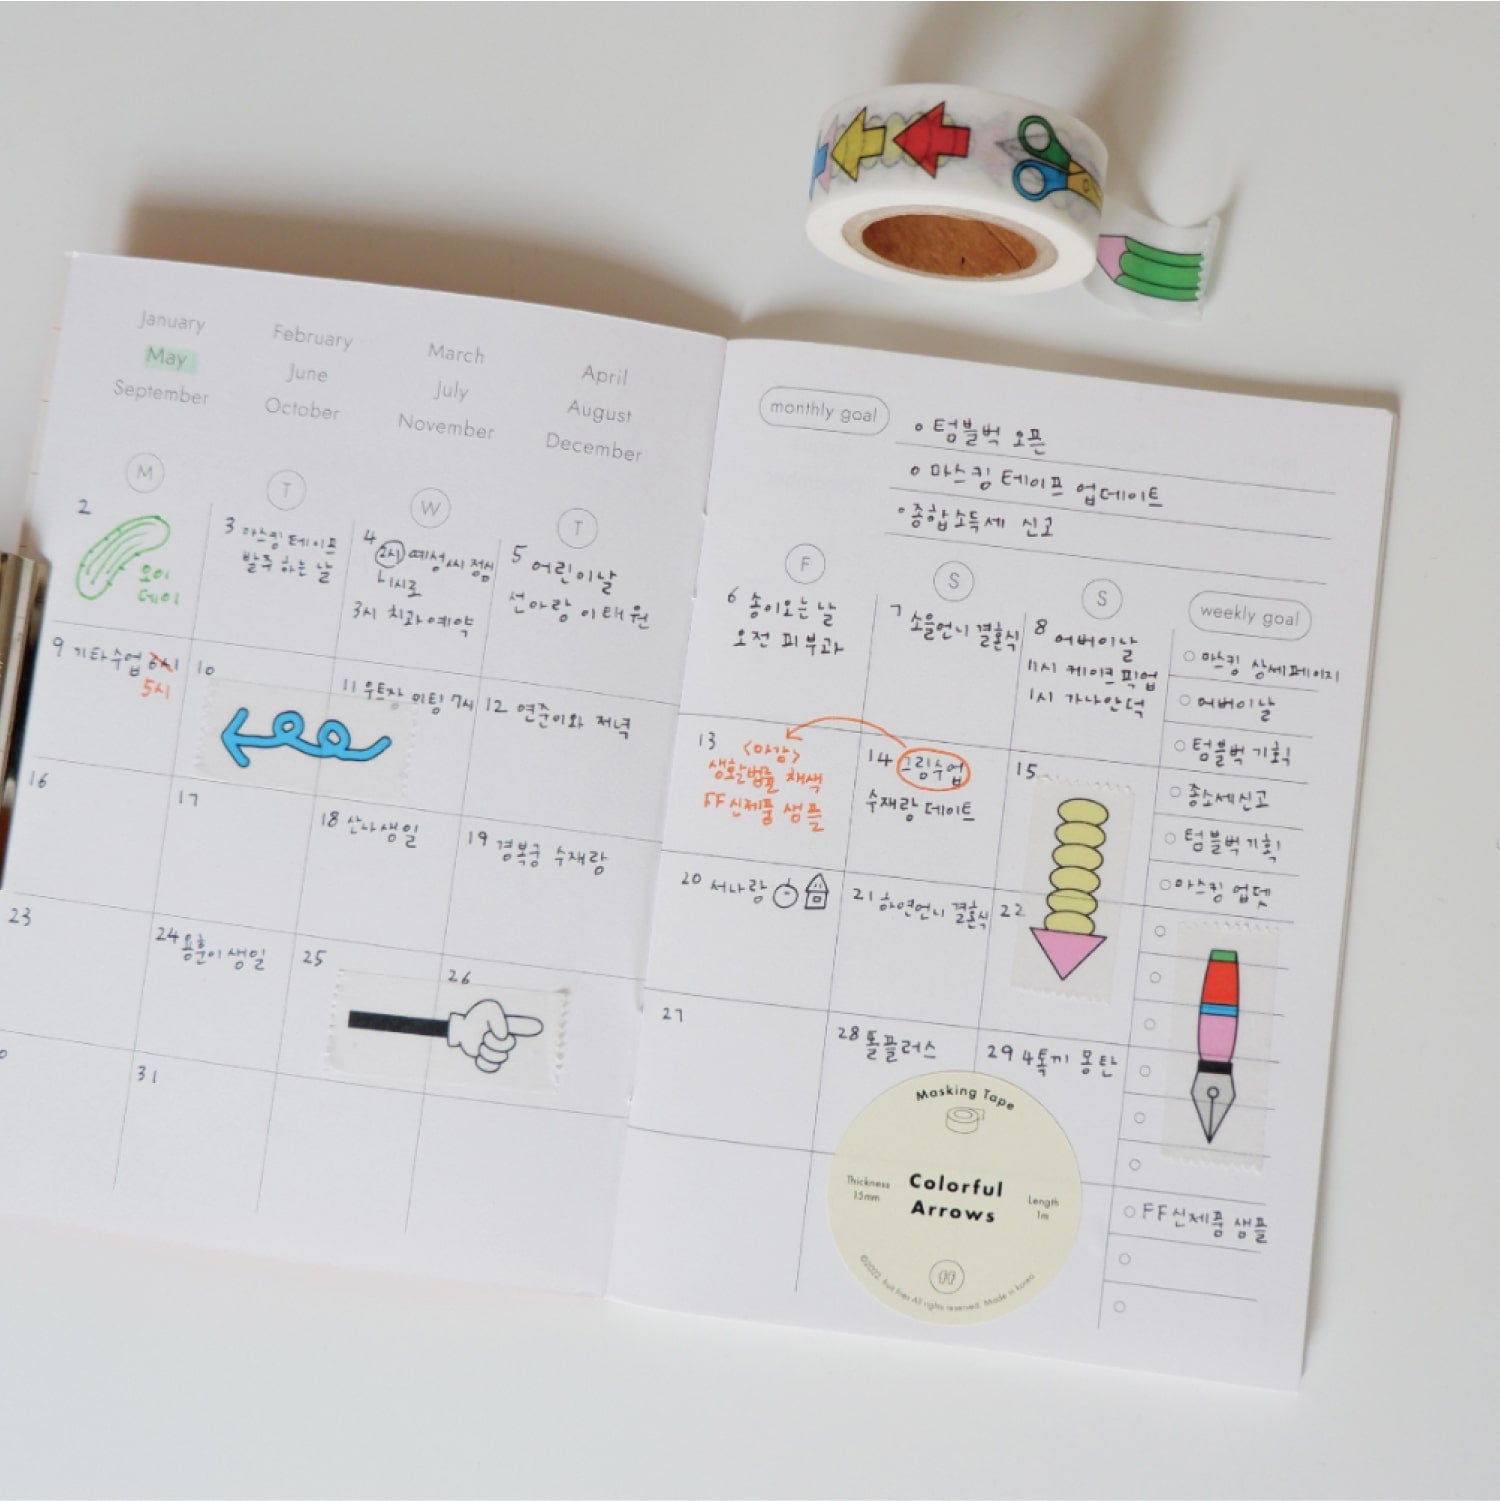 January February March April
May June July August
September October November December
monthly goal
텀블벅 오픈
마스킹 테이프 업데이트
종합소득세 신고
M T W T F S S
weekly goal
2
오이
데이
3 마스킹 테이프
발주 하는 날
4
2시 예성씨 점심
3시 치과예약
5 어린이날
선아랑 이태원
6 송이오는 날
오전 피부과
7 소을언니 결혼식
8 어버이날
11시 케이크 픽업
1시 가나안덕
마스킹 상세페이지
어버이날
텀블벅 기획
종소세신고
텀블벅 기획
마스킹 업뎃
9 기타수업 6시
5시
10
11 우트장 미팅 7시
12 연준이와 저녁
13
<마감>
생활법률 채색
FF신제품 샘플
14 그림수업
수재랑 데이트
15
16
17
18 산나생일
19 경복궁 수재랑
20 서나랑
21 하연언니 결혼식
22
23
24 용훈이 생일
25
26
27
28 톨플러스
29 4톡끼 몽탄
31
FF신제품 샘플
Masking Tape
Thickness
15mm
Colorful
Arrows
Length
1m
©2022. fruit fries All rights reserved. Made in korea